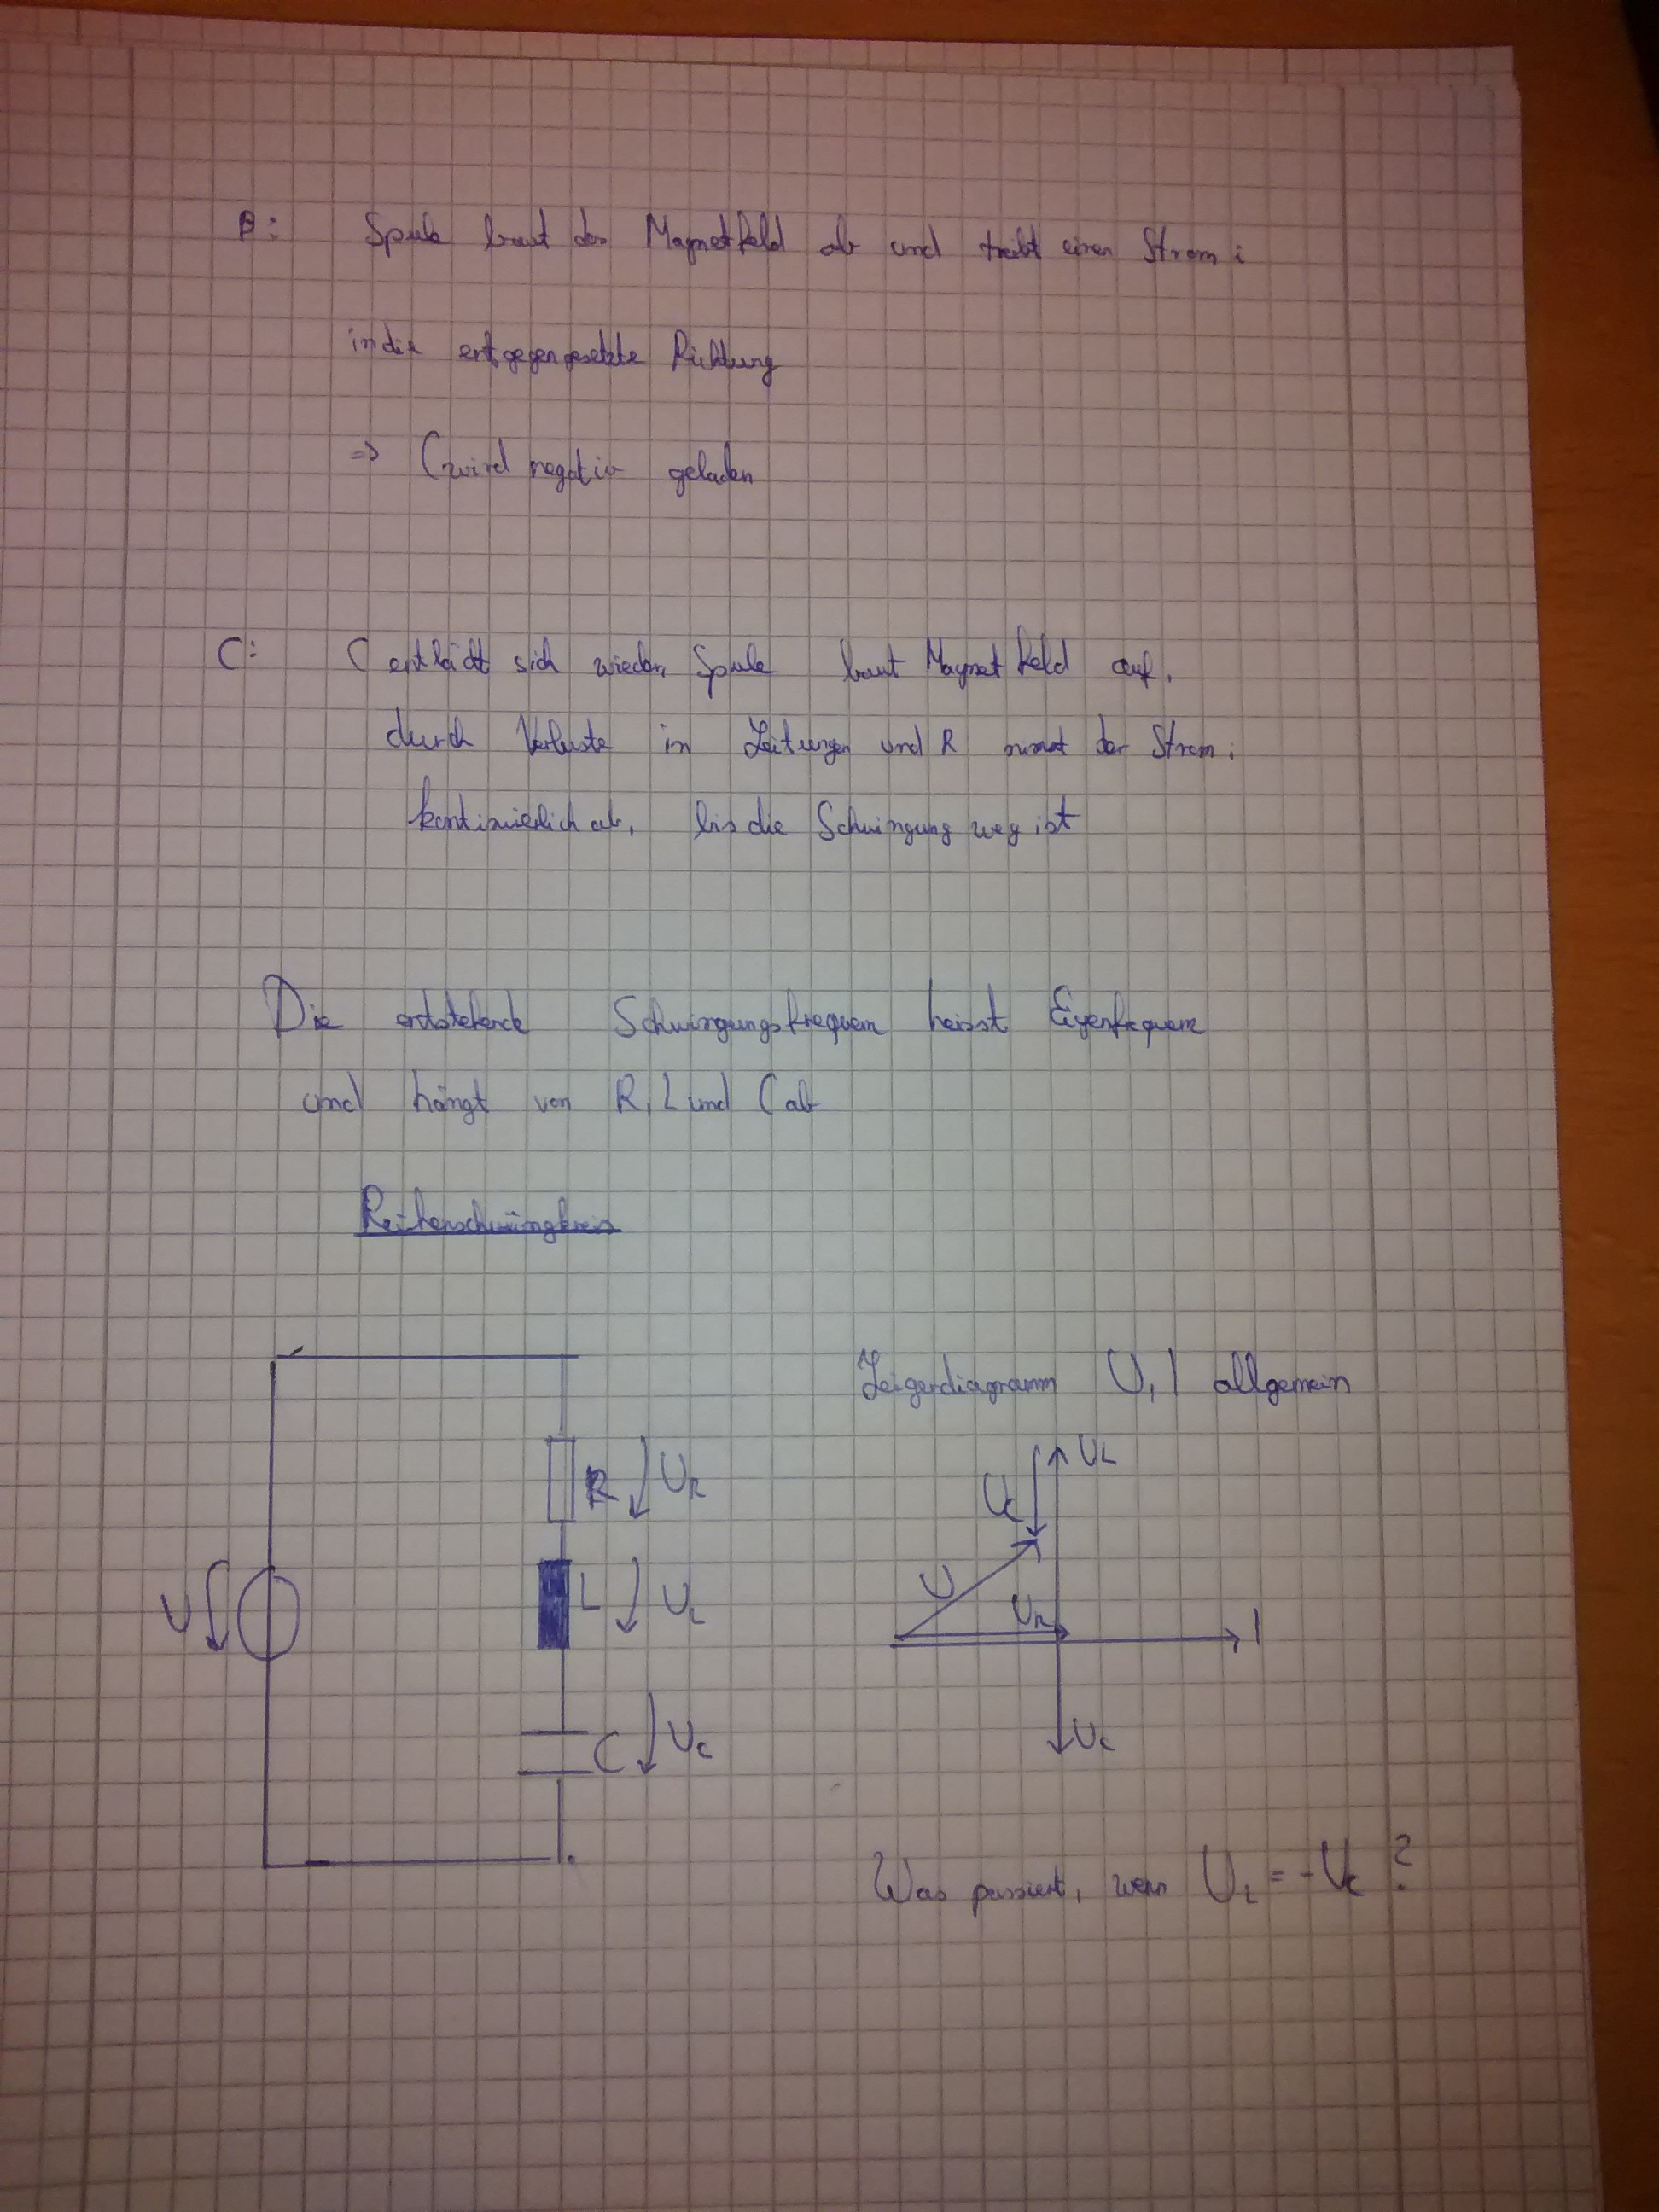 B: Spule baut das Magnetfeld ab und treibt einen Strom i
in die entgegengesetzte Richtung
=> C wird negativ geladen
C: C entlädt sich wieder, Spule baut Magnetfeld auf,
durch Verluste in Leitungen und R nimmt der Strom i
kontinuierlich ab, bis die Schwingung weg ist
Die entstehende Schwingungsfrequenz heisst Eigenfrequenz
und hängt von R, L und C ab
Reihenschwingkreis
Zeigerdiagramm U, I allgemein
U
R UR
L UL
C UC
UL
UC
U
UR
I
UC
Was passiert, wenn UL = -UC ?